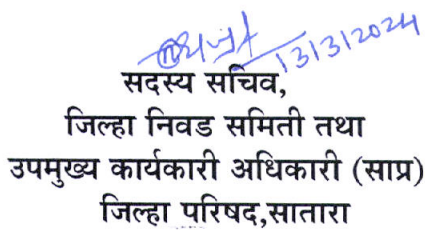 13/3/2024
सदस्य सचिव,
जिल्हा निवड समिती तथा
उपमुख्य कार्यकारी अधिकारी (साप्र)
जिल्हा परिषद,सातारा